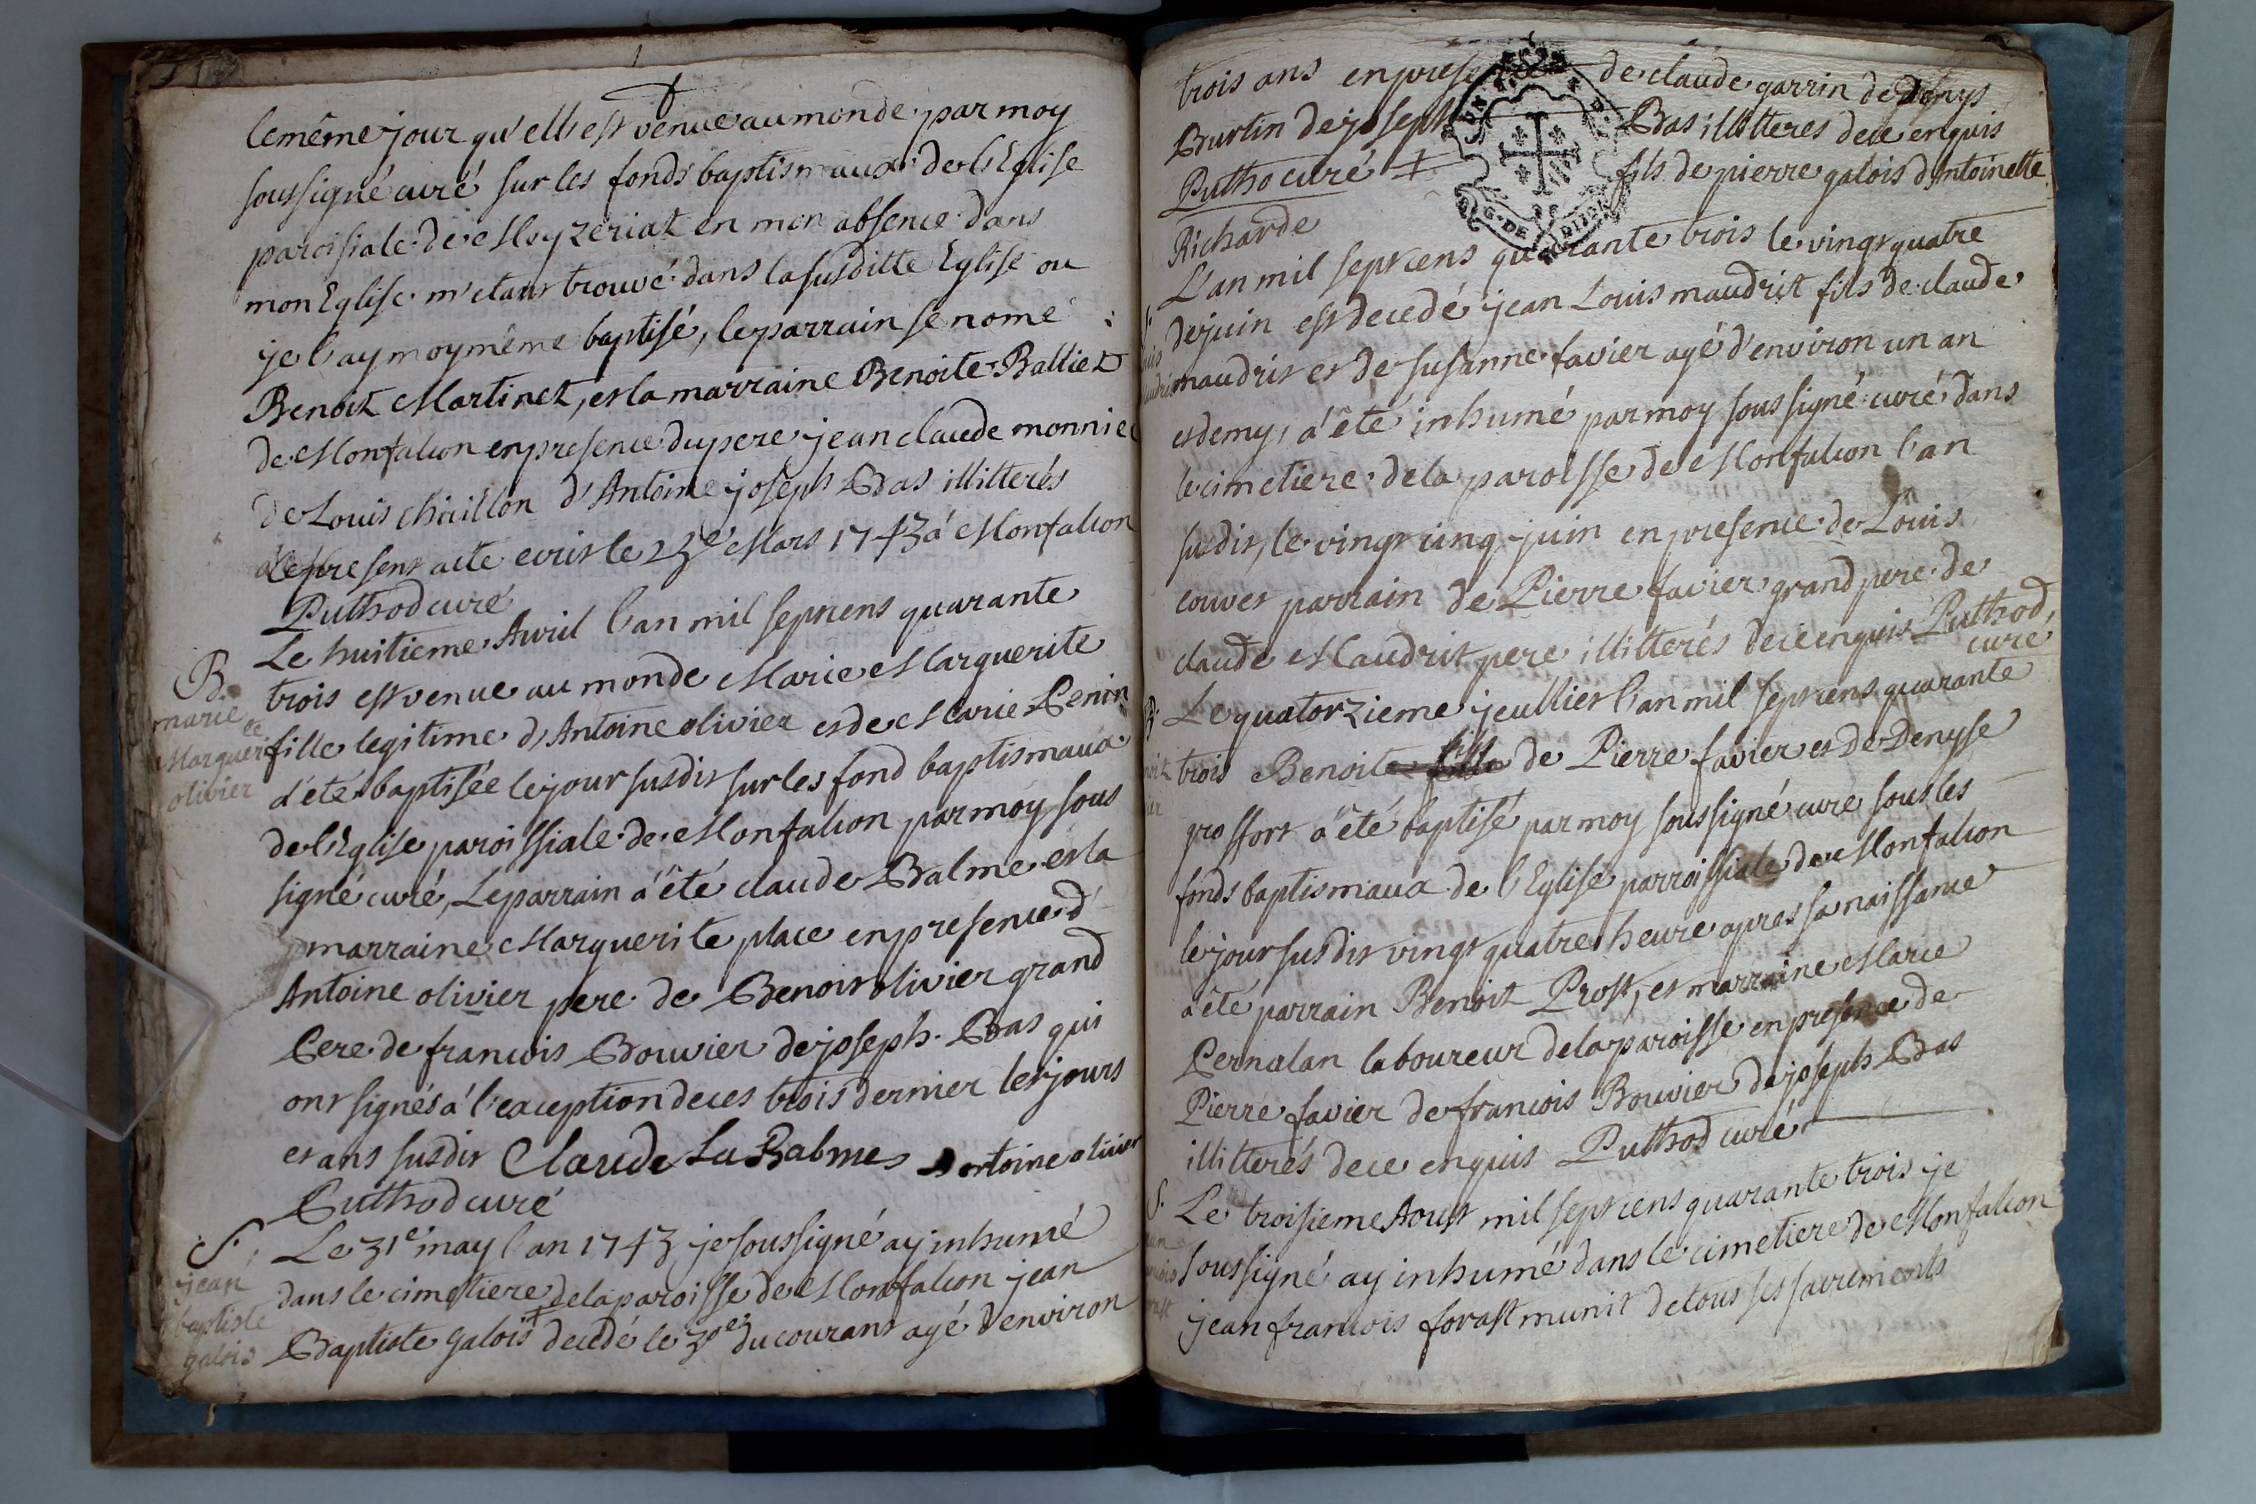 le même jour qu'elle est venue au monde par moy
soussigné curé sur les fonds baptismaux de l'Eglise
paroisiale de Meyzeriat en mon absence dans
mon Eglise m'etant trouvé dans la susditte Eglise ou
je l'ay moy même baptisé, le parrain se nome
Benoit Martinet, et la marraine Benoite Balliet
de Monfalcon en presence du pere jean claude monnier
de Louis chaillon d'Antoine joseph Bas illitterés
le present acte ecrit le 23e Mars 1743 á Monfalcon
Puthod curé
B.
marie
Marguerite
olivier
Le huitieme Avril l'an mil septcens quarante
trois est venue au monde Marie Marguerite
fille legitime d'Antoine olivier et de Marie Perin
a'été baptisée le jour susdit sur les fond baptismaux
de l'Eglise paroissiale de Monfalcon par moy sous
signé curé, Le parrain a'été claude Balme et la
marraine Marguerite place en presence d'
Antoine olivier pere de Benoit olivier grand
Pere de francois Bouvier de joseph Bas qui
ont signés á l'exception de ces trois dernier les jours
et ans susdit Claude La Balmes Antoine olivier
Puthod curé
S.
jean
baptiste
galois
Le 31e may l'an 1743 je soussigné ay inhumé
dans le cimetiere de la paroisse de Monfalcon jean
Baptiste galois + decedé le 30e du courant agé d'environ
trois ans en presence de claude garrin de denys
Burtin de joseph Bas illitteres de ce enquis
Putho curé + fils de pierre galois d'Antoinette
Richarde
S.
L'an mil septcens quarante trois le vingt quatre
de juin est decedé jean Louis maudrit fils de claude
maudrit et de susanne favier agé d'environ un an
et demy, a'été inhumé par moy soussigné curé dans
le cimetiere de la paroisse de Monfalcon l'an
susdit, le vingt cinq juin en presence de Louis
couvet parrain de Pierre favier grand pere de
claude Maudrit pere illitterés de ce enquis Puthod
curé
B.
Le quatorzieme jeullier l'an mil septcens quarante
trois Benoit fils de Pierre favier et de Denyse
grossfort a'été baptisé par moy soussigné curé sous les
fonds baptismaux de l'Eglise parroissiale de Monfalcon
le jour susdit vingt quatre heure apres sa naissance
a'été parrain Benoit Prost, et marraine Marie
Pernalan laboureur de la paroisse en presence de
Pierre favier de francois Bouvier de joseph Bas
illitterés de ce enquis Puthod curé
S.
Le troisieme Aoust mil septcens quarante trois je
soussigné ay inhumé dans le cimetiere de Monfalcon
jean francois forast munit de tous ses sacrements